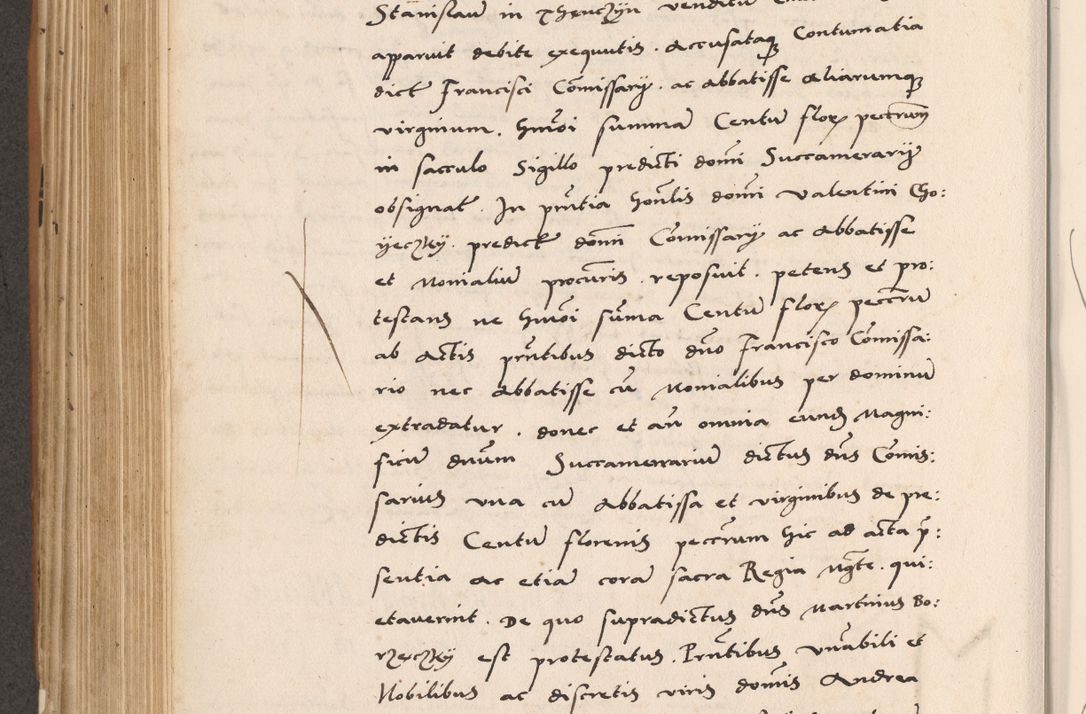 Stanislaum in Thenczyn
apparuit debite exequutis . Accusataq Contumatia
dict Francisci Comissarÿ . ac Abbatisse Aliarumq
virginum . huiusmoi summam Centum flor pecrum
in sacculo Sigillo predicti domi Succamerarÿ
obsignat In pntia honlis domi Valentini Cho:
ÿeczkÿ . predict domi Comissarÿ ac Abbatisse
et Monialium procuris . reposuit . petens et pro:
testans ne huiusmoi suma Centum flor peccrum
ab Actis pntibus dicto dno Francisco Comissa:
rio nec Abbatisse cum Monialibus per dominum
extradatur . donec et an omnia eundem Magni:
ficum dnum Succamerarium dictus dns Comis:
sarius una cum Abbatissa et virginibus de pre:
dictis Centum florenis peccrum hic ad acta p:
sentia ac etiam coram sacra Regia Mgte . qui:
etaverint . De quo supradictus dns Martinus Bo:
rzeczkÿ est protestatus . Pntibus vnabili et
Nobilibus ac discretis viris domis Andrea